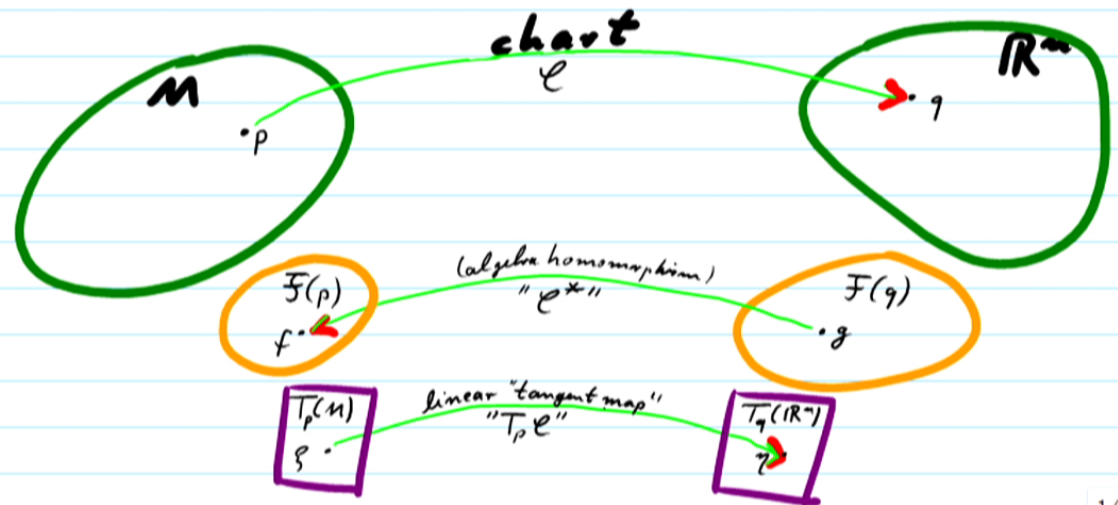 chart
M
ℝⁿ
φ
p
q
(algebra homomorphism)
F(p)
"φ*"
F(q)
f
g
linear "tangent map"
T_p(M)
"T_p φ"
T_q(ℝⁿ)
ξ
η